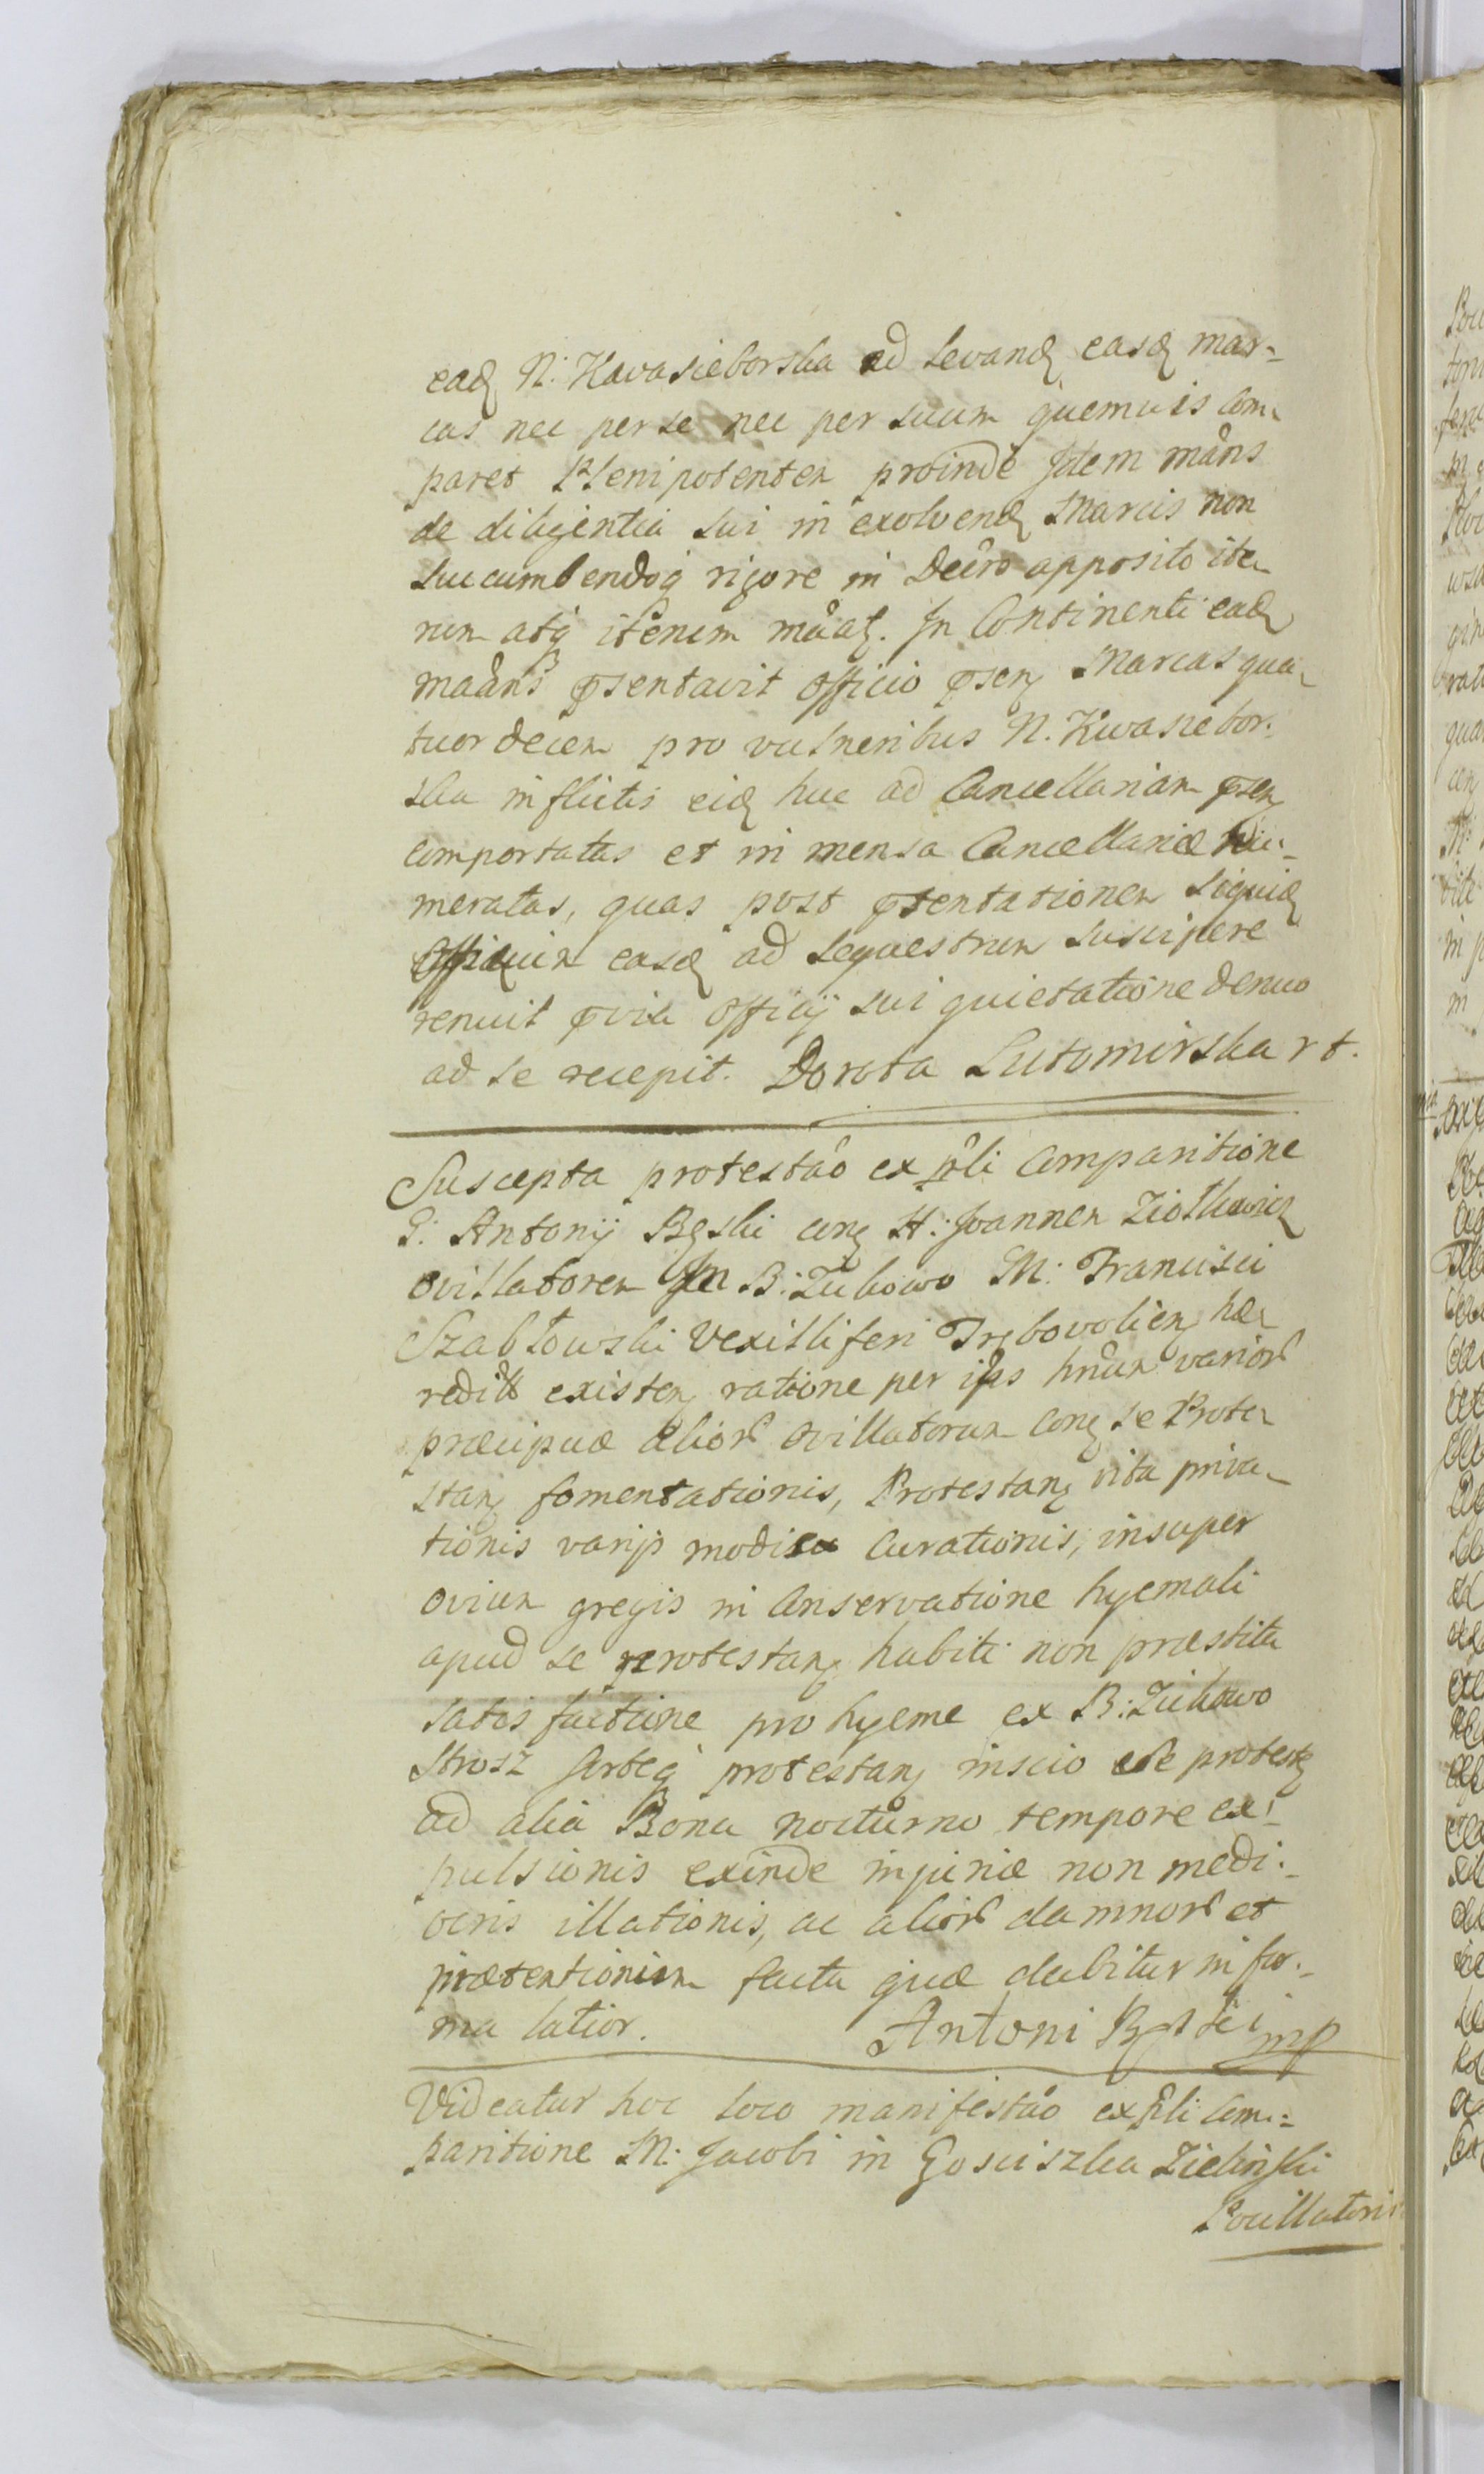 eadꝫ N: Kwasieborska ad levandꝫ easdꝫ mar=
cas nec per se nec per suum quemvis Com-
paret Plenipotentem proinde Idem mãns
de diligentia sui in exolvendꝫ Marcis non
succumbendoq̃ rigore in Decro apposito ite-
rum atq̃ iterum mãatꝫ. In Continenti eadꝫ
maãns p̃sentavit officio p̃senꝫ Marcas qua-
tuordecem pro vulneribus N. Kwasiebor.
ska inflictis eidꝫ huc ad Cancellariam p̃senꝫ
comportatas et in mensa Cancellariæ nu-
meratas, quas post p̃sentationem siquidꝫ
Officium easdꝫ ad sequestrum suscipere
renuit p̃via officij sui quietatione denuo
ad se recepit. Dorota Lutomirska rt.
Suscepta protestão ex p̃li Comparitione
G: Antonij Bęski conꝫ H: Joannem Ziołkowicz
ovillatorem In B: Żukowo M: Francisci
Szabłowski Vexilliferi Trębovolienꝫ hæ-
redit existenꝫ ratione per ipss hñdam varior
præcipuæ alior ovillatorum conꝫ se Prote-
stanꝫ fomentationis, Protestanꝫ vita priva-
tionis varijs modis Curationis, insuper
ovium gregis in Conservatione hyemali
apud se protestanꝫ habiti non præstita
satisfactione pro hyeme ex B: Żukowo
Strosz forteq̃ protestanꝫ inscio
ad alia Bona nocturno tempore ex-
pulsionis exinde injuriæ non medi-
ocris illationis, ac alior damnor et
prætentionum facta quæ dabitur in for-
ma latior. Antoni Bęski mp
Videatur hoc loco manifestão ex p̃li Com=
paritione M: Jacobi in Gosciszka Zielinski
Pocillatoris